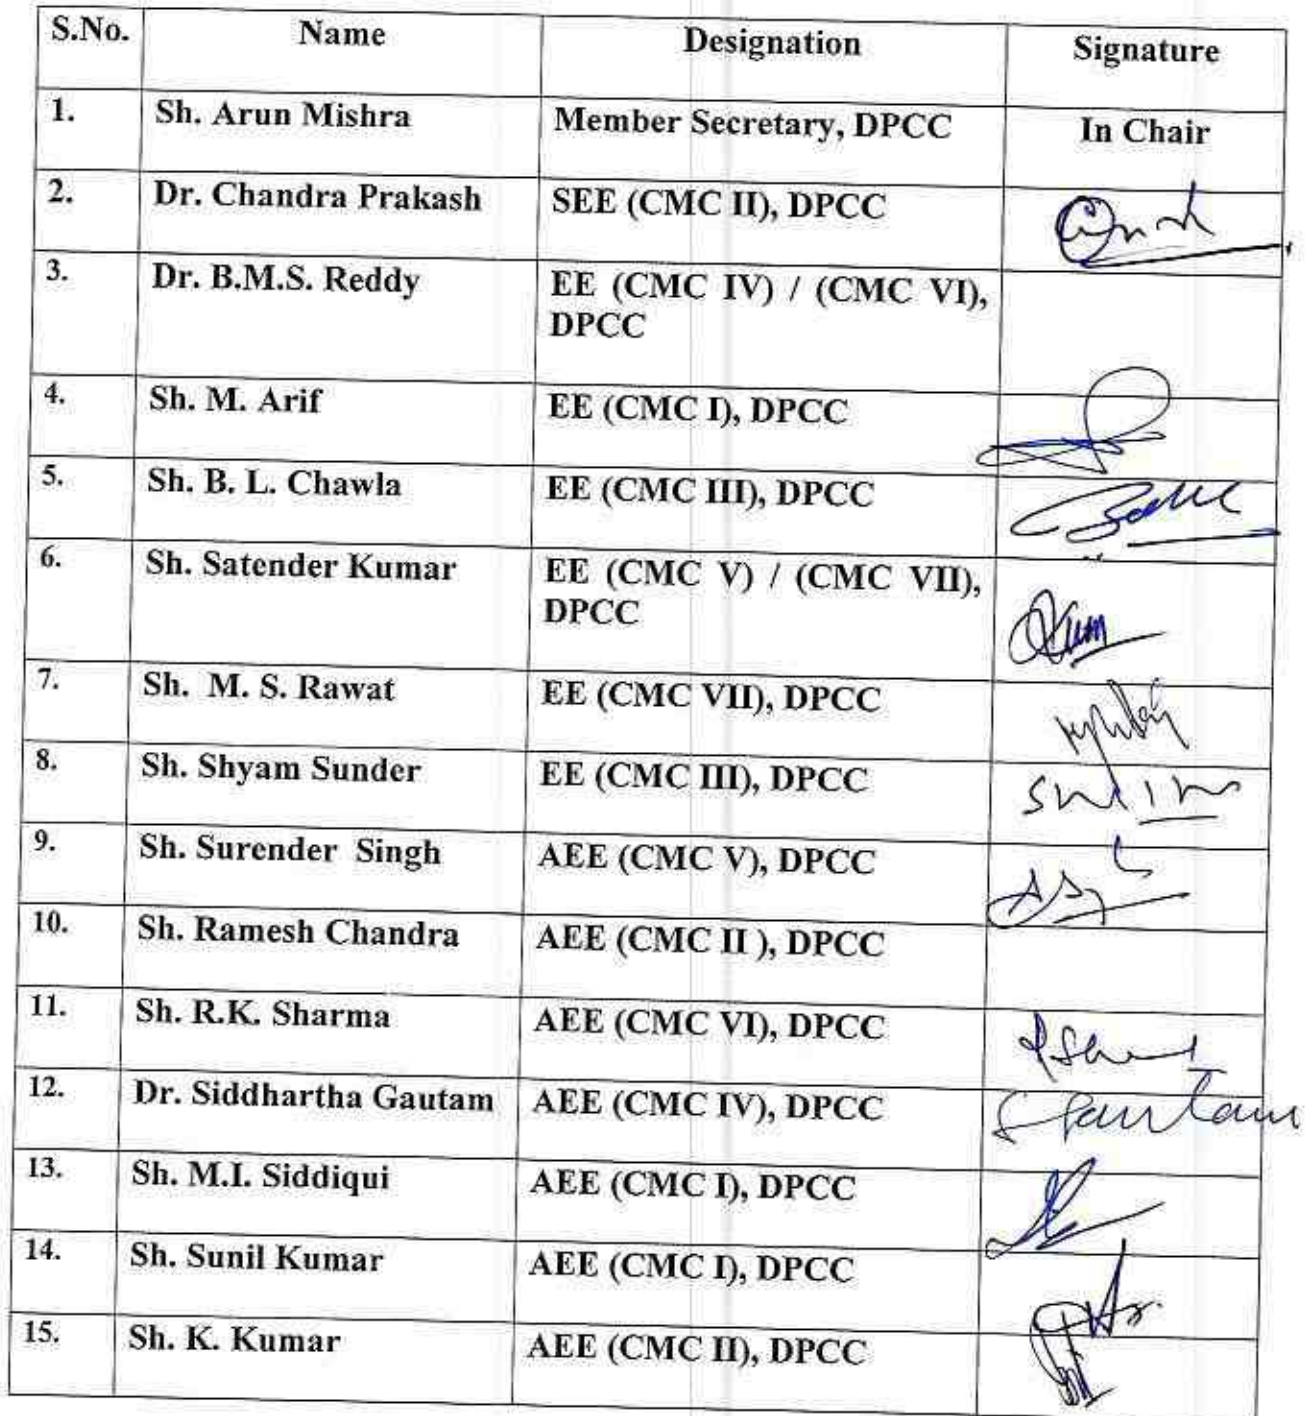 S.No. Name Designation Signature
1. Sh. Arun Mishra Member Secretary, DPCC In Chair
2. Dr. Chandra Prakash SEE (CMC II), DPCC
3. Dr. B.M.S. Reddy EE (CMC IV) / (CMC VI),
DPCC
4. Sh. M. Arif EE (CMC I), DPCC
5. Sh. B. L. Chawla EE (CMC III), DPCC
6. Sh. Satender Kumar EE (CMC V) / (CMC VII),
DPCC
7. Sh. M. S. Rawat EE (CMC VII), DPCC
8. Sh. Shyam Sunder EE (CMC III), DPCC
9. Sh. Surender Singh AEE (CMC V), DPCC
10. Sh. Ramesh Chandra AEE (CMC II ), DPCC
11. Sh. R.K. Sharma AEE (CMC VI), DPCC
12. Dr. Siddhartha Gautam AEE (CMC IV), DPCC S Gautam
13. Sh. M.I. Siddiqui AEE (CMC I), DPCC
14. Sh. Sunil Kumar AEE (CMC I), DPCC
15. Sh. K. Kumar AEE (CMC II), DPCC